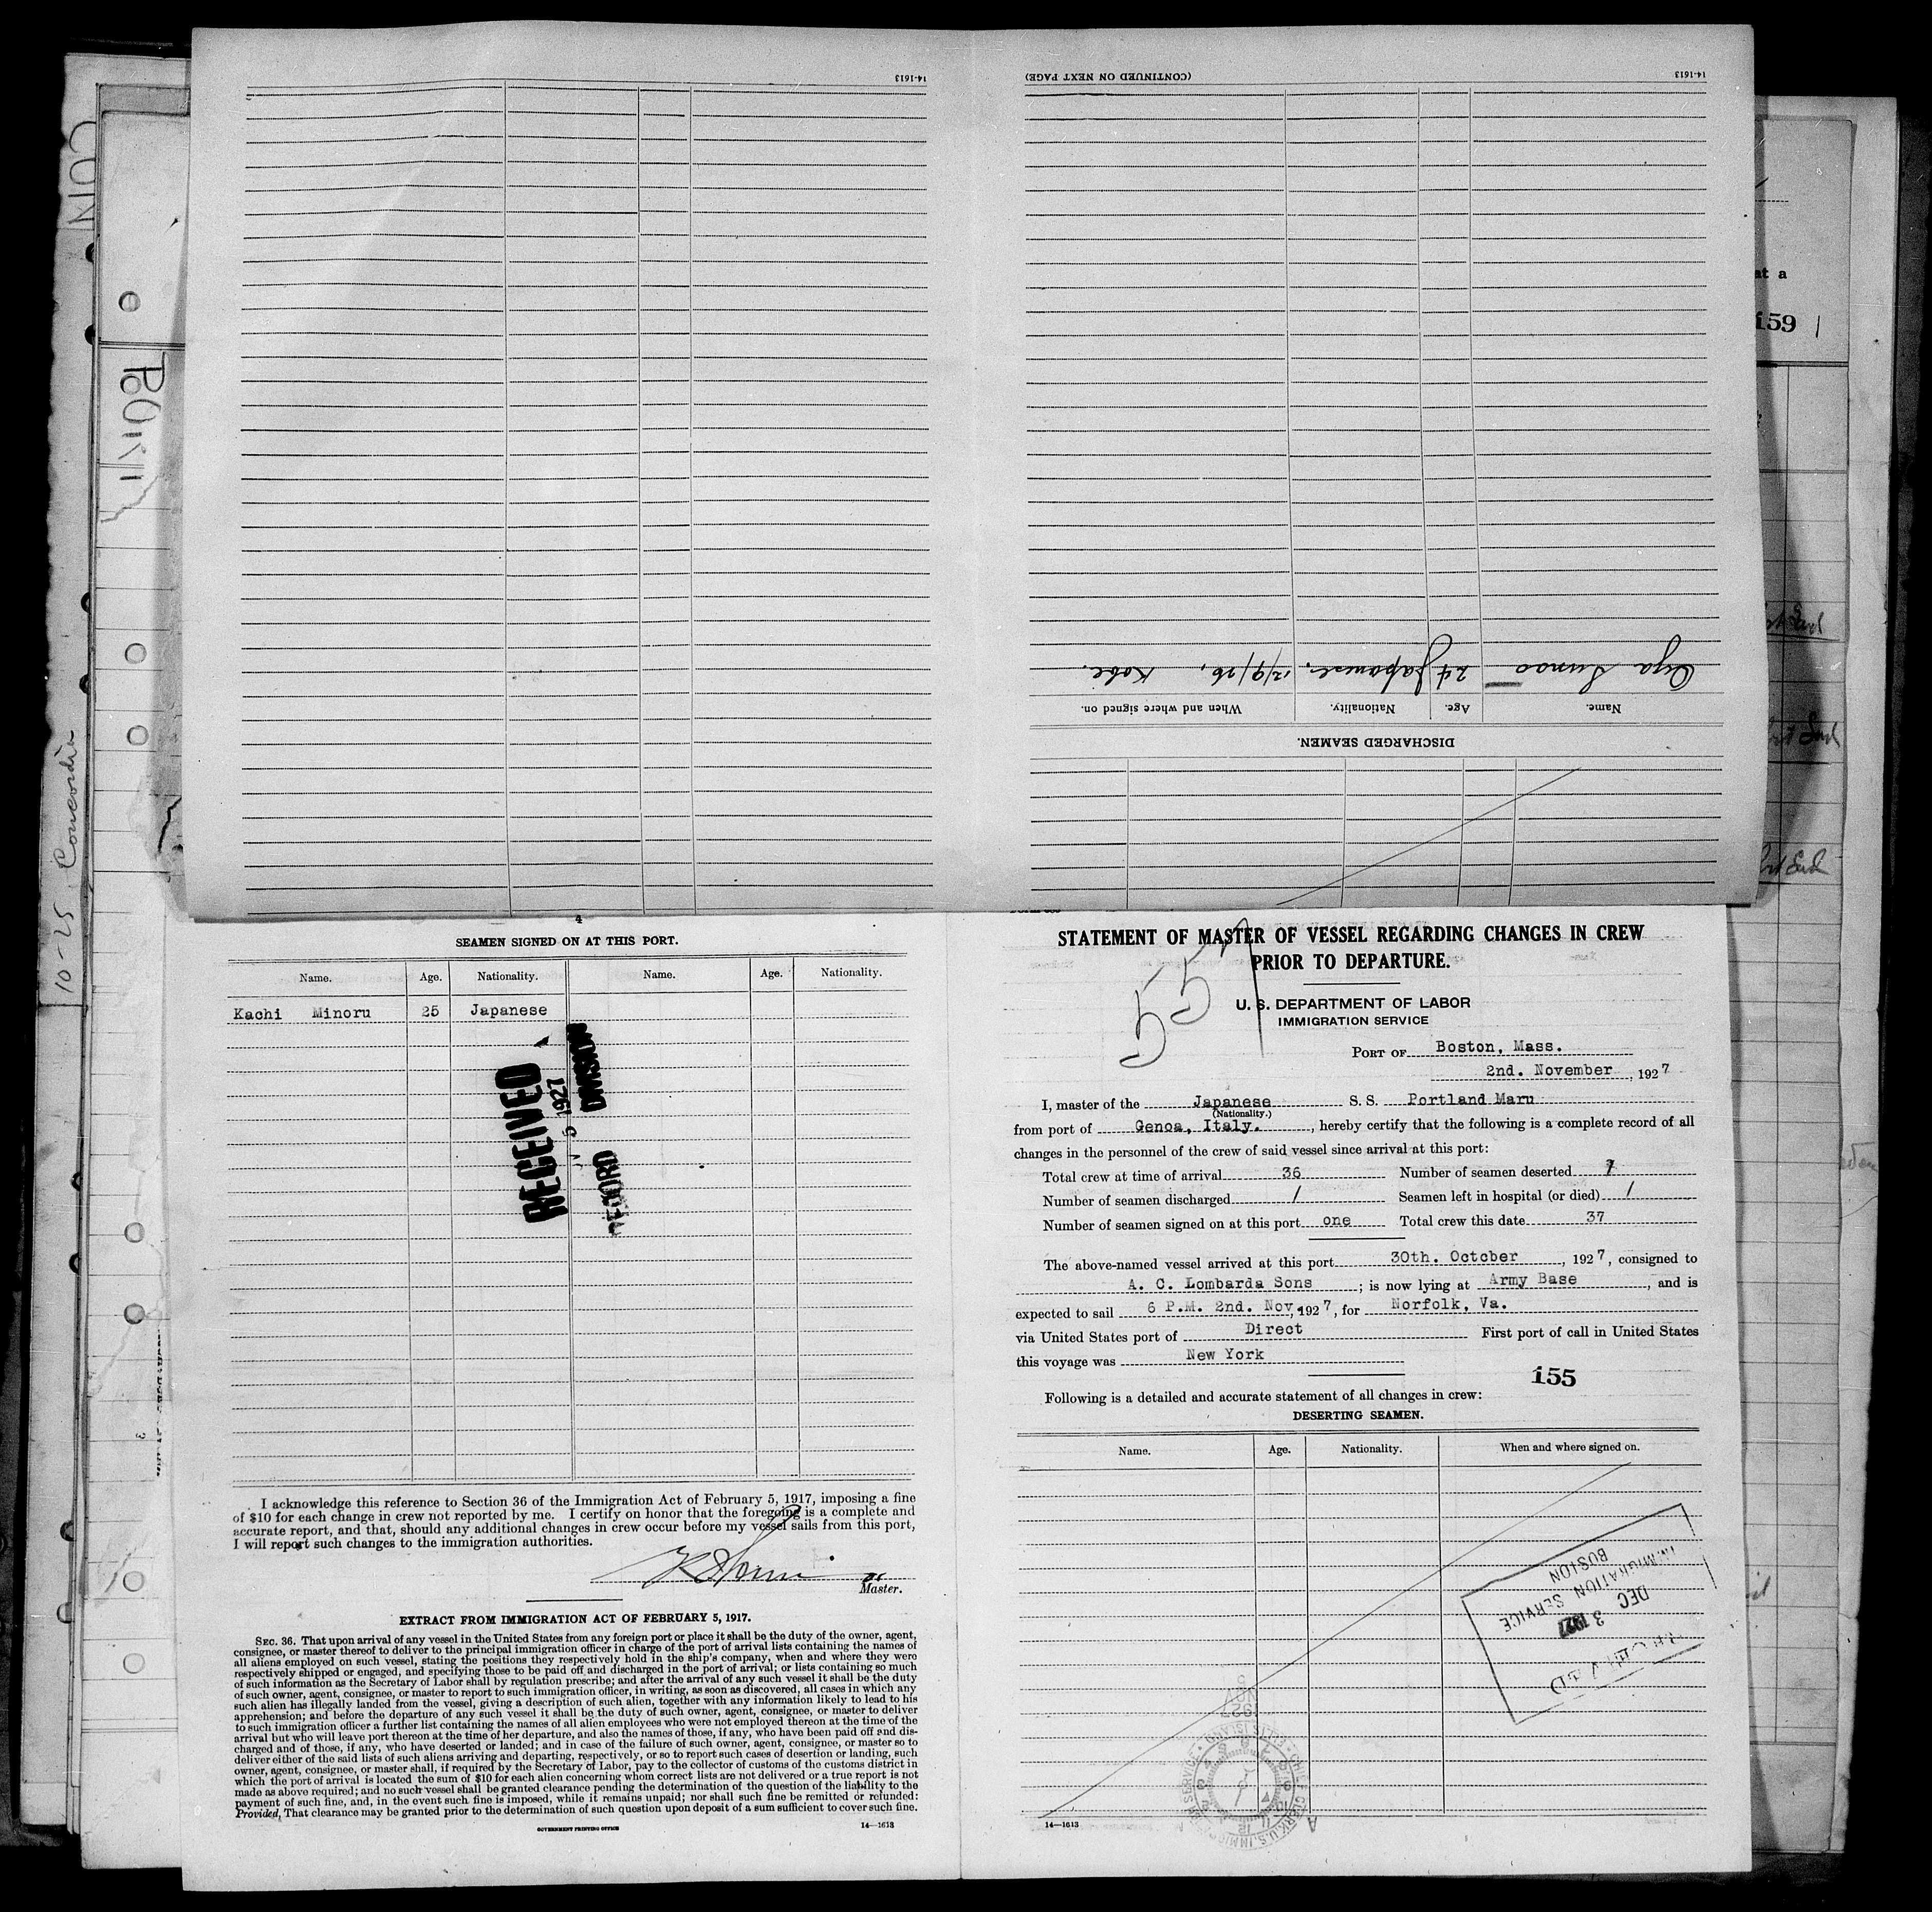 14-1613
(CONTINUED ON NEXT PAGE)
14-1613
DISCHARGED SEAMEN.
Name. Age. Nationality. When and where signed on.
Oya Sunao 24 Japanese. 12/9/26, Kobe.
CON
PORT
10-25 Concordia
at a
159
4
SEAMEN SIGNED ON AT THIS PORT.
Name. Age. Nationality. Name. Age. Nationality.
Kachi Minoru 25 Japanese
RECEIVED
1927
RECORD DIVISION
I acknowledge this reference to Section 36 of the Immigration Act of February 5, 1917, imposing a fine
of $10 for each change in crew not reported by me. I certify on honor that the foregoing is a complete and
accurate report, and that, should any additional changes in crew occur before my vessel sails from this port,
I will report such changes to the immigration authorities.
Master.
EXTRACT FROM IMMIGRATION ACT OF FEBRUARY 5, 1917.
SEC. 36. That upon arrival of any vessel in the United States from any foreign port or place it shall be the duty of the owner, agent,
consignee, or master thereof to deliver to the principal immigration officer in charge of the port of arrival lists containing the names of
all aliens employed on such vessel, stating the positions they respectively hold in the ship's company, when and where they were
respectively shipped or engaged, and specifying those to be paid off and discharged in the port of arrival; or lists containing so much
of such information as the Secretary of Labor shall by regulation prescribe; and after the arrival of any such vessel it shall be the duty
of such owner, agent, consignee, or master to report to such immigration officer, in writing, as soon as discovered, all cases in which any
such alien has illegally landed from the vessel, giving a description of such alien, together with any information likely to lead to his
apprehension; and before the departure of any such vessel it shall be the duty of such owner, agent, consignee, or master to deliver
to such immigration officer a further list containing the names of all alien employees who were not employed thereon at the time of the
arrival but who will leave port thereon at the time of her departure, and also the names of those, if any, who have been paid off and dis-
charged and of those, if any, who have deserted or landed; and in case of the failure of such owner, agent, consignee, or master so to
deliver either of the said lists of such aliens arriving and departing, respectively, or so to report such cases of desertion or landing, such
owner, agent, consignee, or master shall, if required by the Secretary of Labor, pay to the collector of customs of the customs district in
which the port of arrival is located the sum of $10 for each alien concerning whom correct lists are not delivered or a true report is not
made as above required; and no such vessel shall be granted clearance pending the determination of the question of the liability to the
payment of such fine, and, in the event such fine is imposed, while it remains unpaid; nor shall such fine be remitted or refunded:
Provided, That clearance may be granted prior to the determination of such question upon deposit of a sum sufficient to cover such fine.
GOVERNMENT PRINTING OFFICE
14—1613
STATEMENT OF MASTER OF VESSEL REGARDING CHANGES IN CREW
PRIOR TO DEPARTURE.
557
U. S. DEPARTMENT OF LABOR
IMMIGRATION SERVICE
PORT OF Boston, Mass.
2nd. November, 1927
I, master of the Japanese S. S. Portland Maru
(Nationality.)
from port of Genoa, Italy., hereby certify that the following is a complete record of all
changes in the personnel of the crew of said vessel since arrival at this port:
Total crew at time of arrival 36 Number of seamen deserted
Number of seamen discharged 1 Seamen left in hospital (or died) 1
Number of seamen signed on at this port one Total crew this date 37
The above-named vessel arrived at this port 30th. October, 1927, consigned to
A. C. Lombarda Sons; is now lying at Army Base, and is
expected to sail 6 P.M. 2nd. Nov, 1927, for Norfolk, Va.
via United States port of Direct First port of call in United States
this voyage was New York
155
Following is a detailed and accurate statement of all changes in crew:
DESERTING SEAMEN.
Name. Age. Nationality. When and where signed on.
RECEIVED
DEC 3 1927
IMMIGRATION SERVICE
BOSTON
14—1613